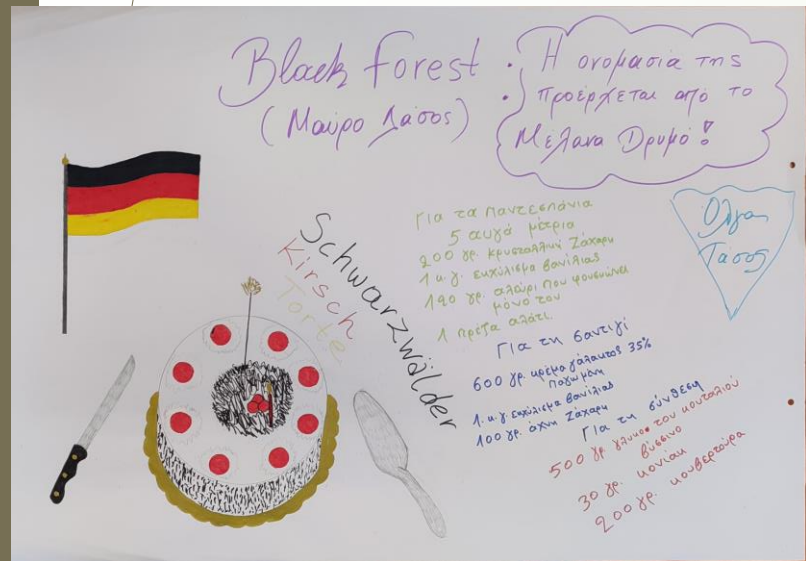 Black Forest
(Μαύρο Δάσος)
• Η ονομασία της
• προέρχεται από το
Μέλανα Δρυμό!
Όλγα
Τάσος
Schwarzwälder
Kirsch
Torte
Για τα παντεσπάνια
5 αυγά μέτρια
200 γρ. κρυσταλλική ζάχαρη
1 κ.γ. εκχύλισμα βανίλιας
190 γρ. αλεύρι που φουσκώνει
μόνο του
1 πρέζα αλάτι.
Για τη σαντιγί
600 γρ. κρέμα γάλακτος 35%
παγωμένη
1 κ.γ. εκχύλισμα βανίλιας
100 γρ. άχνη ζάχαρη
Για τη σύνθεση
500 γρ γλυκό του κουταλιού
βύσσινο
30 γρ. κονιάκ
200 γρ. κουβερτούρα